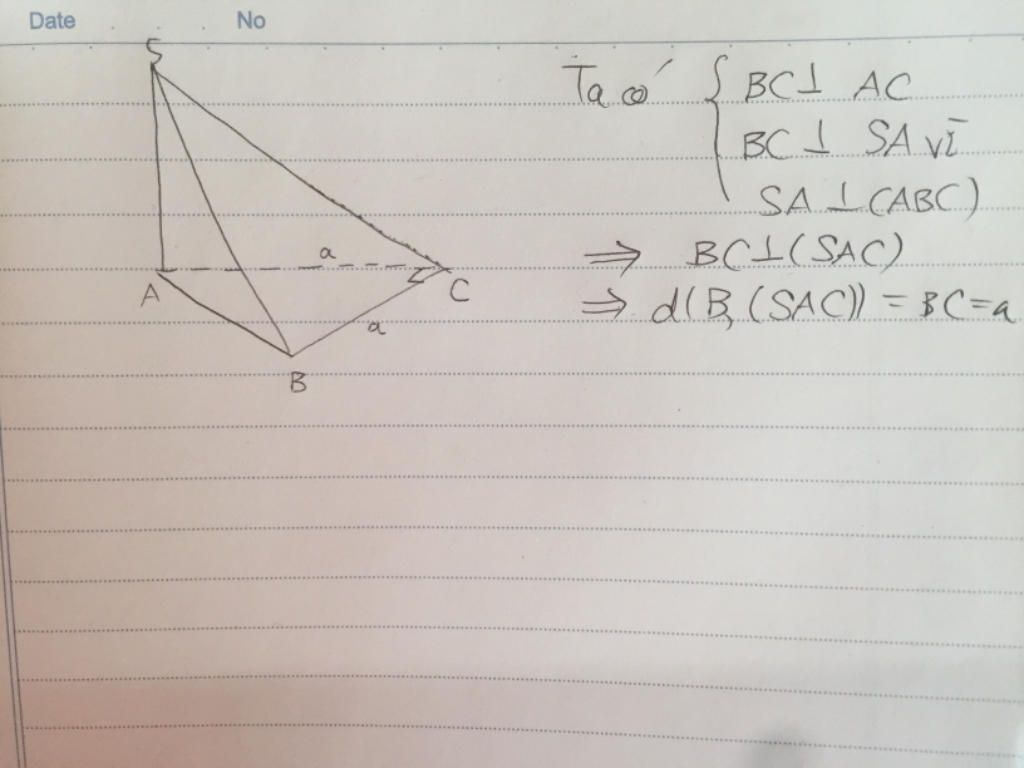 Date No
S
A
a
C
a
B
Ta có { BC ⊥ AC
BC ⊥ SA vì
SA ⊥ (ABC)
⇒ BC ⊥ (SAC)
⇒ d(B, (SAC)) = BC = a